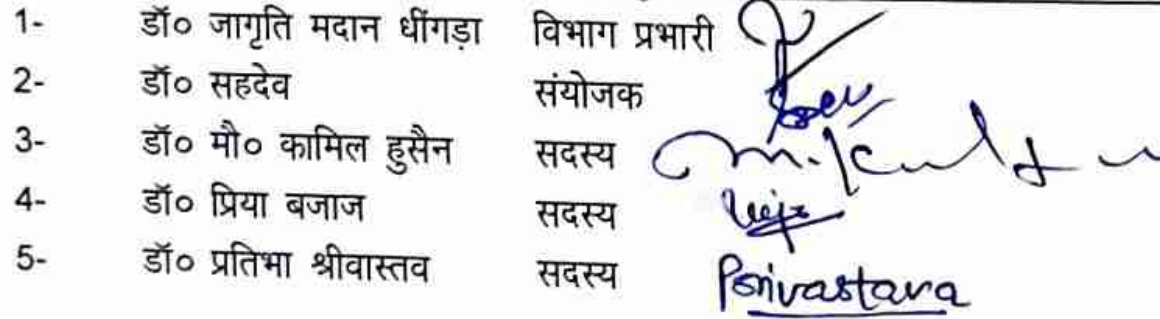 1- डॉ० जागृति मदान धींगड़ा विभाग प्रभारी
2- डॉ० सहदेव संयोजक
3- डॉ० मौ० कामिल हुसैन सदस्य
4- डॉ० प्रिया बजाज सदस्य
5- डॉ० प्रतिभा श्रीवास्तव सदस्य Psrivastava